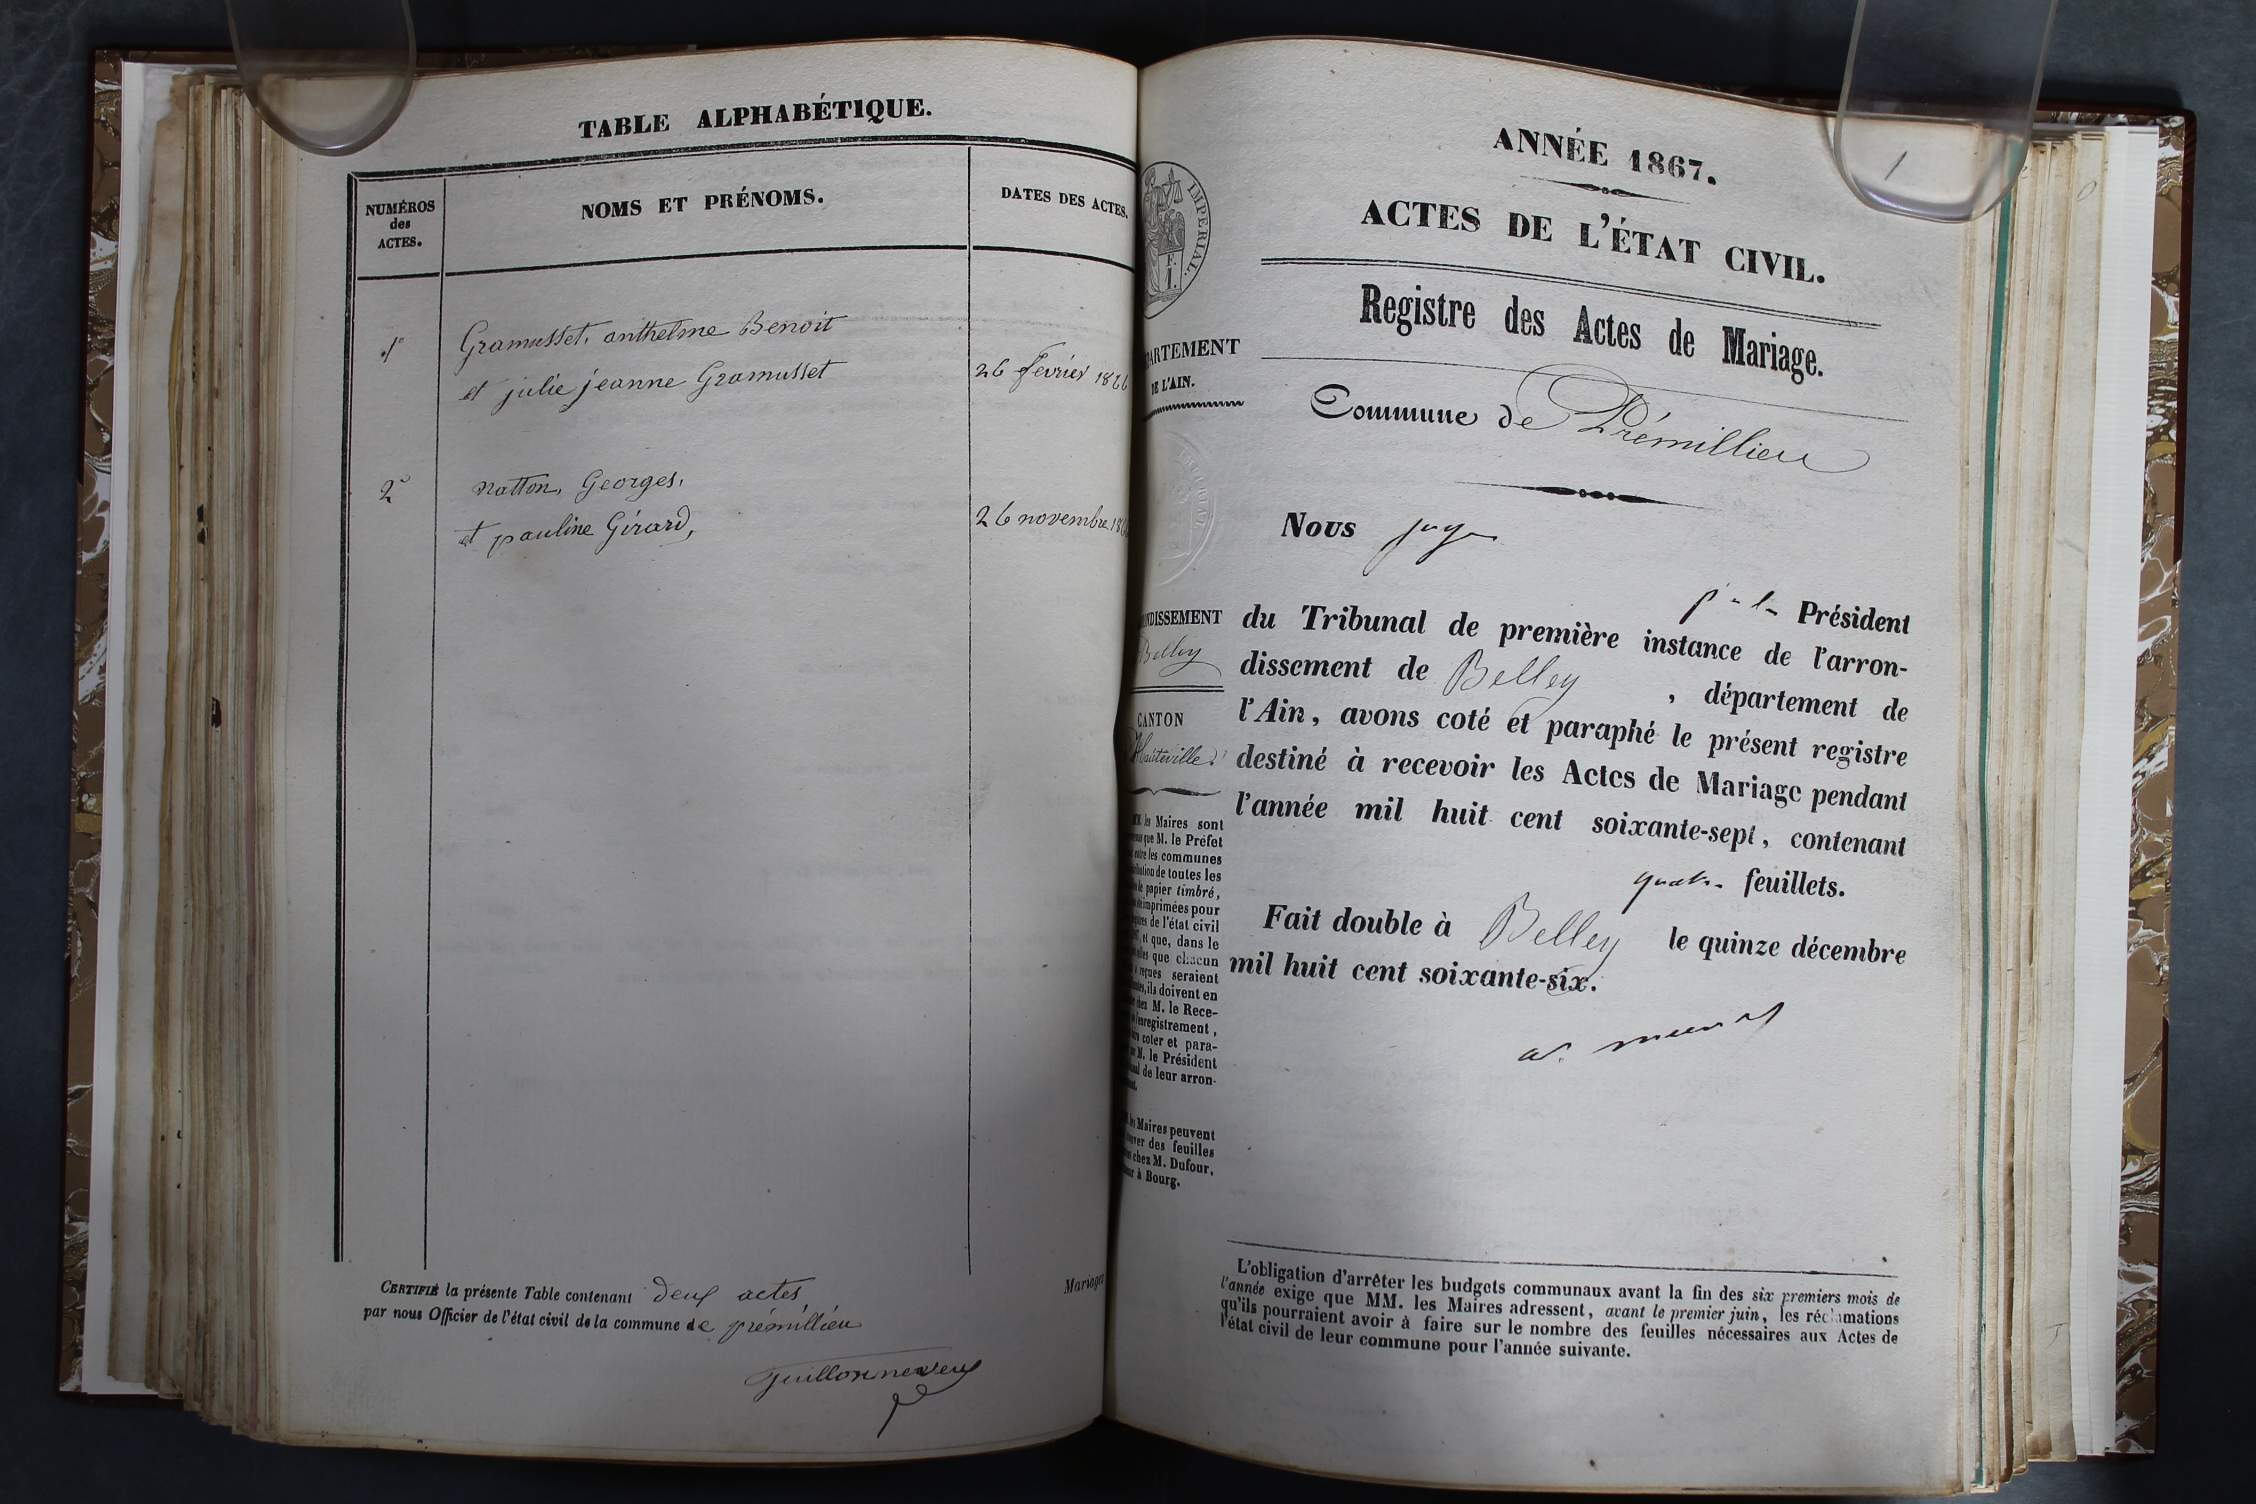 TABLE ALPHABÉTIQUE.
NUMÉROS
des
ACTES.
NOMS ET PRÉNOMS.
DATES DES ACTES.
1°
Gramusset, anthelme Benoit
et julie jeanne Gramusset
26 février 1866
2°
natton, Georges,
et pauline Girard,
26 novembre 186
CERTIFIÉ la présente Table contenant deux actes
par nous Officier de l'état civil de la commune de prémillieu
Mariages
Guillon neveu
1
ANNÉE 1867.
ACTES DE L'ÉTAT CIVIL.
Registre des Actes de Mariage.
Commune de Prémillieu
IMPERIAL.
F.
1.
PARTEMENT
DE L'AIN.
NDISSEMENT
Belley
CANTON
Hauteville
MM. les Maires sont
que M. le Préfet
entre les communes
de toutes les
de papier timbré,
imprimées pour
de l'état civil
et que, dans le
que chacun
reçues seraient
ils doivent en
chez M. le Rece-
l'enregistrement,
coter et para-
M. le Président
de leur arron-
les Maires peuvent
des feuilles
chez M. Dufour,
à Bourg.
Nous juge
p. le Président
du Tribunal de première instance de l'arron-
dissement de Belley, département de
l'Ain, avons coté et paraphé le présent registre
destiné à recevoir les Actes de Mariage pendant
l'année mil huit cent soixante-sept, contenant
quatre feuillets.
Fait double à Belley le quinze décembre
mil huit cent soixante-six.
L'obligation d'arrêter les budgets communaux avant la fin des six premiers mois de
l'année exige que MM. les Maires adressent, avant le premier juin, les réclamations
qu'ils pourraient avoir à faire sur le nombre des feuilles nécessaires aux Actes de
l'état civil de leur commune pour l'année suivante.